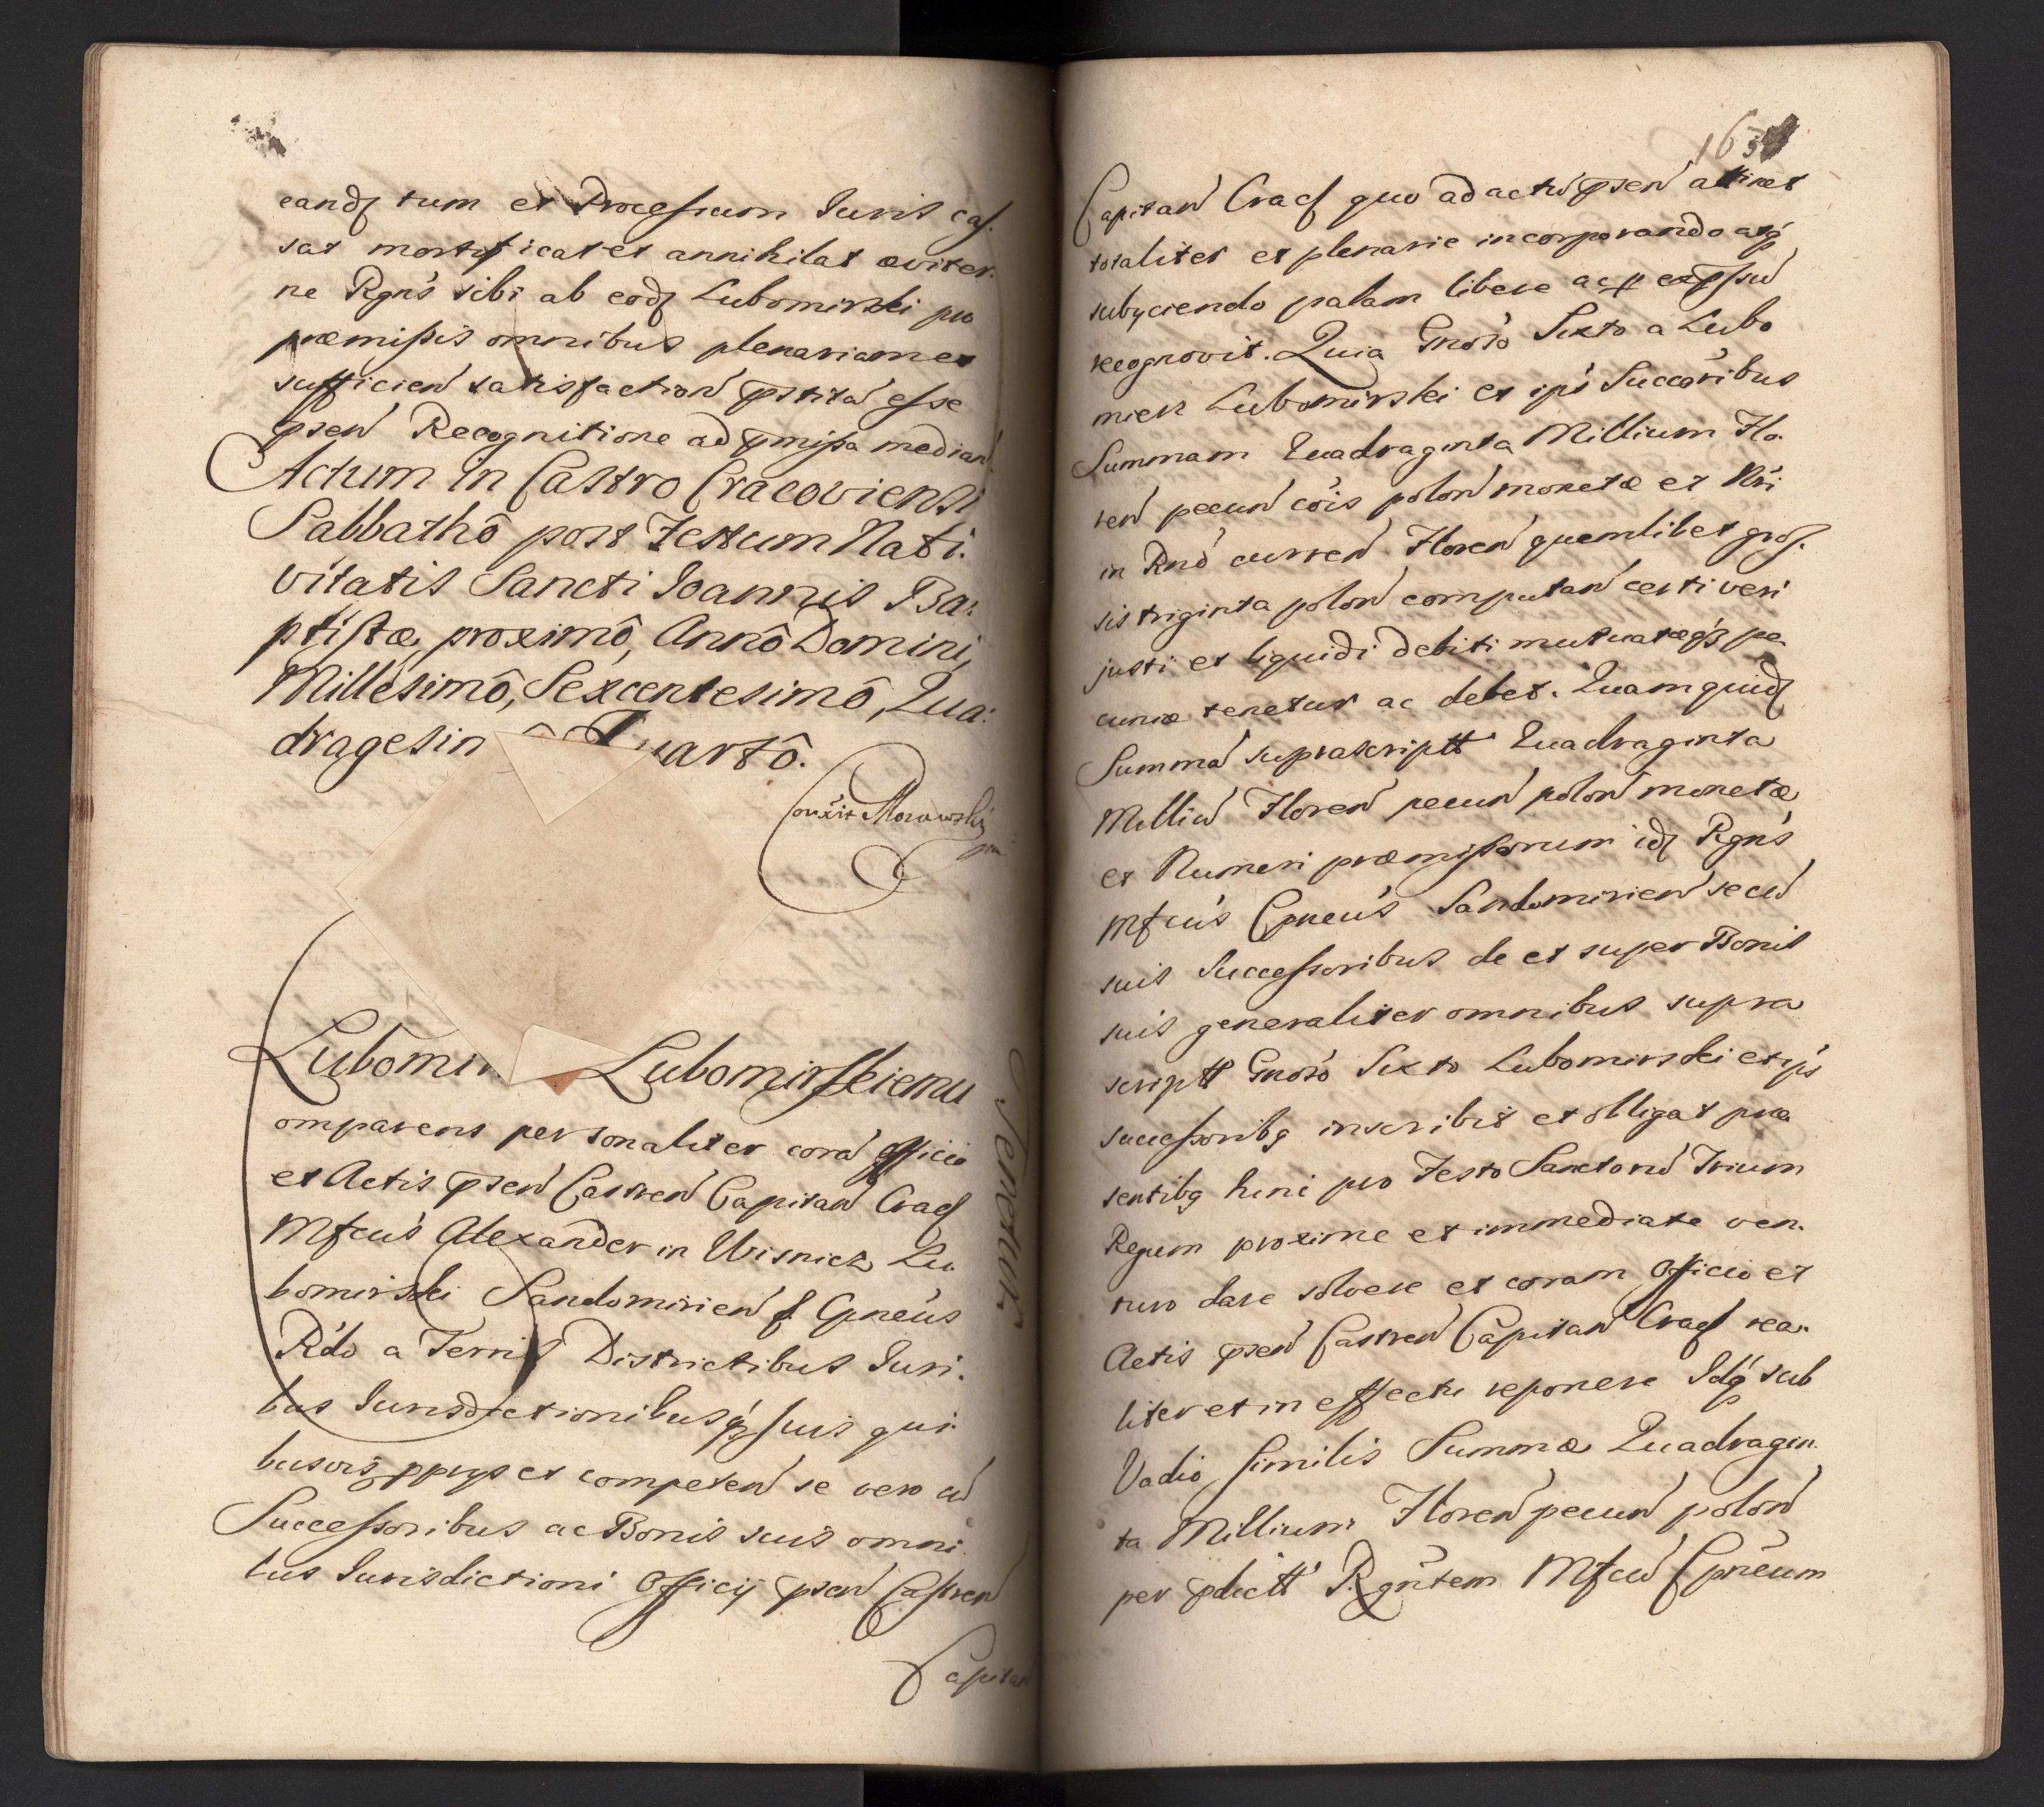 eandẽ tum et Processum Juris cas.
sat mortificat et annihilat æviter.
ne Rgńs sibi ab eodẽ Lubomirski pro
præmissis omnibus plenariam et
sufficień satisfactioń pstitá esse
pseń Recognitione ad pmissa mediań.
Actum in Castro Cracoviensi
Sabbathô post Festum Nati.
vitatis Sancti Joannis Ba:
ptistæ proximô, Annô Domini
Millesimô, Sexcentesimô, Qua:
dragesim ô Quartô.
Corŕxit Morawski
Lubomir Lubomirskiemu
omparens personaliter corá officio
et Actis pseń Castreń Capitań Crac
Mfcús Alexander in Wisnicz Lu.
bomirski Sandomirień & Cpneús
Rdo a Terris Districtibus Juri.
bus Jurisdictionibusq́ suis qui.
busvis ppriys et competeń se vero cú
Successoribus ac Bonis suis omni.
bus Jurisdictioni Officij pseń Castreń
Capitań
Tenetur
163
Capitań Crac quo ad actú pseń attinet
totaliter et plenarie incorporando atq́
subyciendo palam libere ac p exp̃ssú
recognovit. Quia Gnoso Sixto a Lubo
mierz Lubomirski et ips Succoribus
Summam Quadraginta Millium Flo.
reń pecuń cois poloń monetæ et Nri
in Rno curreń Floreń quemlibet gros.
sis triginta poloń computań certi veri
justi et liquidi debiti mutuatæq́ pe.
cuniæ tenetur ac debet. Quamquidẽ
Summá suprascriptt Quadraginta
Milliú Floreń pecuń poloń monetæ
et Numeri præmissorum idẽ Rgńs
Mfcús Cpneús Sandomirień se cú
suis Successoribus de et super Bonis
suis generaliter omnibus supra
scriptt Gnoso Sixto Lubomirski et ips
successoribq inscribit et obligat præ
sentibq hinc pro Festo Sanctorú Trium
Regum proxime et immediate ven.
turo dare solvere et coram Officio et
Actis pseń Castreń Capitań Crac rea.
liter et in effectu reponere Idq́ sub
Vadio similis Summæ Quadragin.
ta Millium Floreń pecuń poloń
per pdictt Rgńtem Mfcú Cpnéum